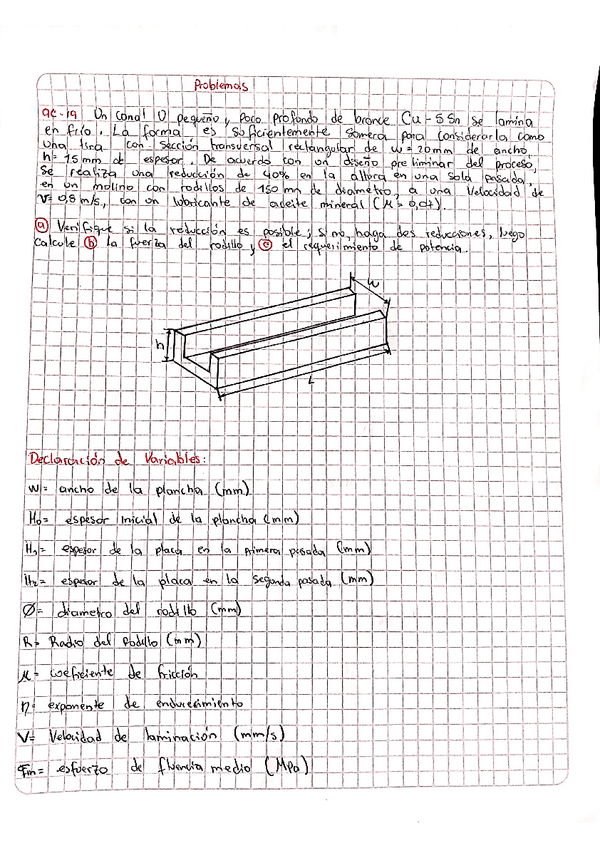 Problemas
9C-19 Un canal U pequeño y poco profundo de bronce Cu-5Sn se lamina
en frío. La forma es suficientemente somera para considerarla como
una tira con sección transversal rectangular de w=20mm de ancho
h=15mm de espesor. De acuerdo con un diseño preliminar del proceso,
se realiza una reducción de 40% en la altura en una sola pasada,
en un molino con rodillos de 150 mm de diametro, a una velocidad de
V=0,8 m/s, con un lubricante de aceite mineral (μ=0,07).
ⓐ Verifique si la reducción es posible; si no, haga dos reducciones, luego
calcule ⓑ la fuerza del rodillo y ⓒ el requerimiento de potencia.
w
h
L
Declaración de Variables:
w= ancho de la plancha (mm)
H₀= espesor inicial de la plancha (mm)
H₁= espesor de la placa en la primera pasada (mm)
H₂= espesor de la placa en la segunda pasada (mm)
Ø= diametro del rodillo (mm)
R= Radio del Rodillo (mm)
μ= coeficiente de fricción
η= exponente de endurecimiento
V= Velocidad de laminación (mm/s)
σfm= esfuerzo de fluencia medio (MPa)